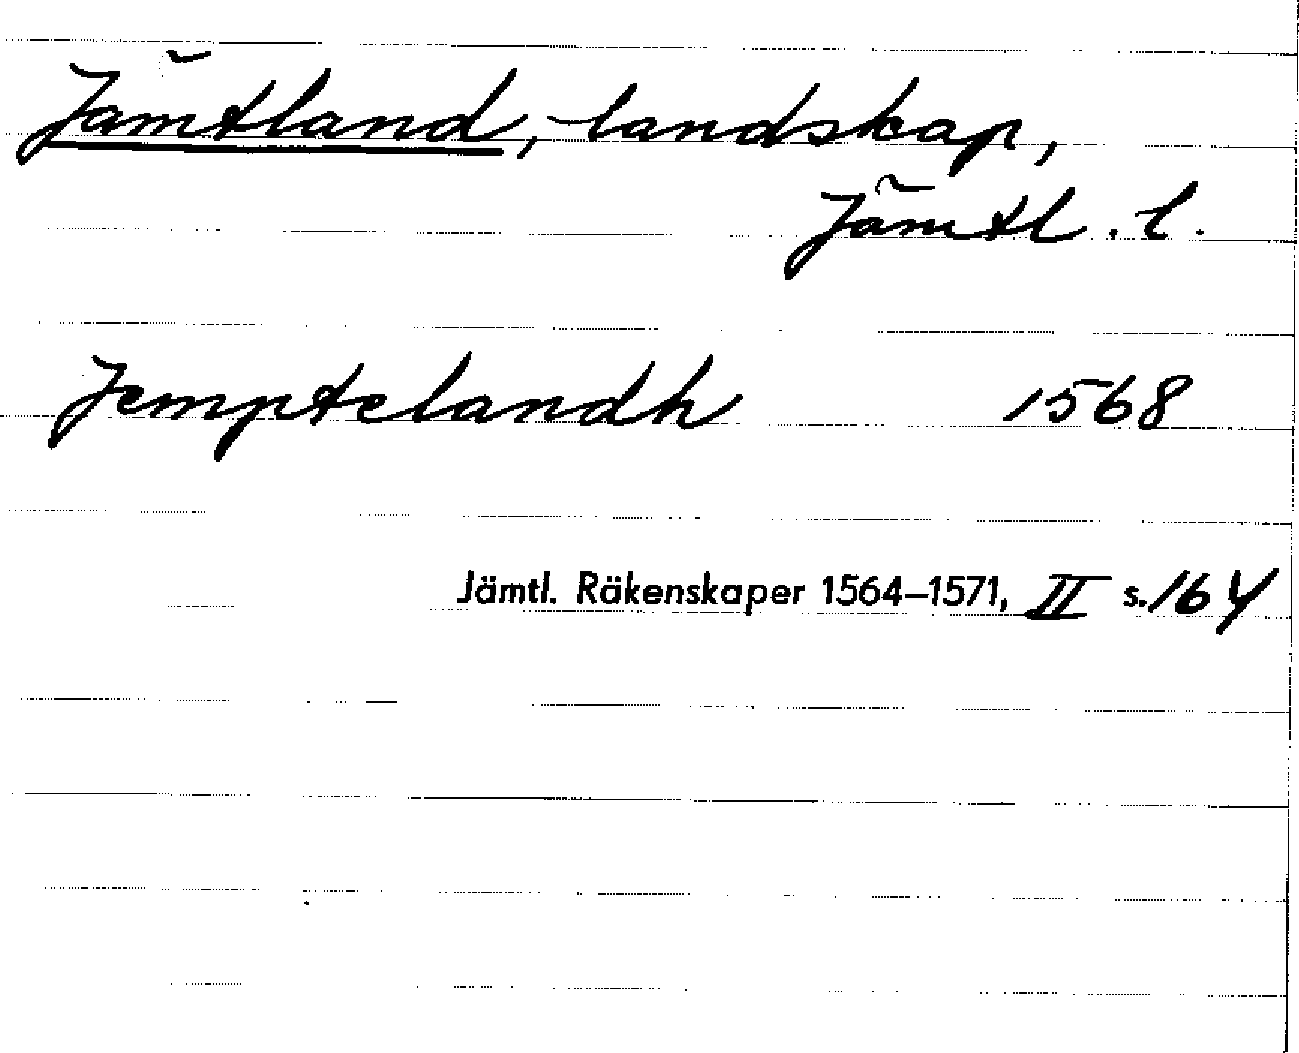 Jämtland, landskap,
Jämtl. l.
Jemptelandh 1568
Jämtl. Räkenskaper 1564–1571, II s. 164